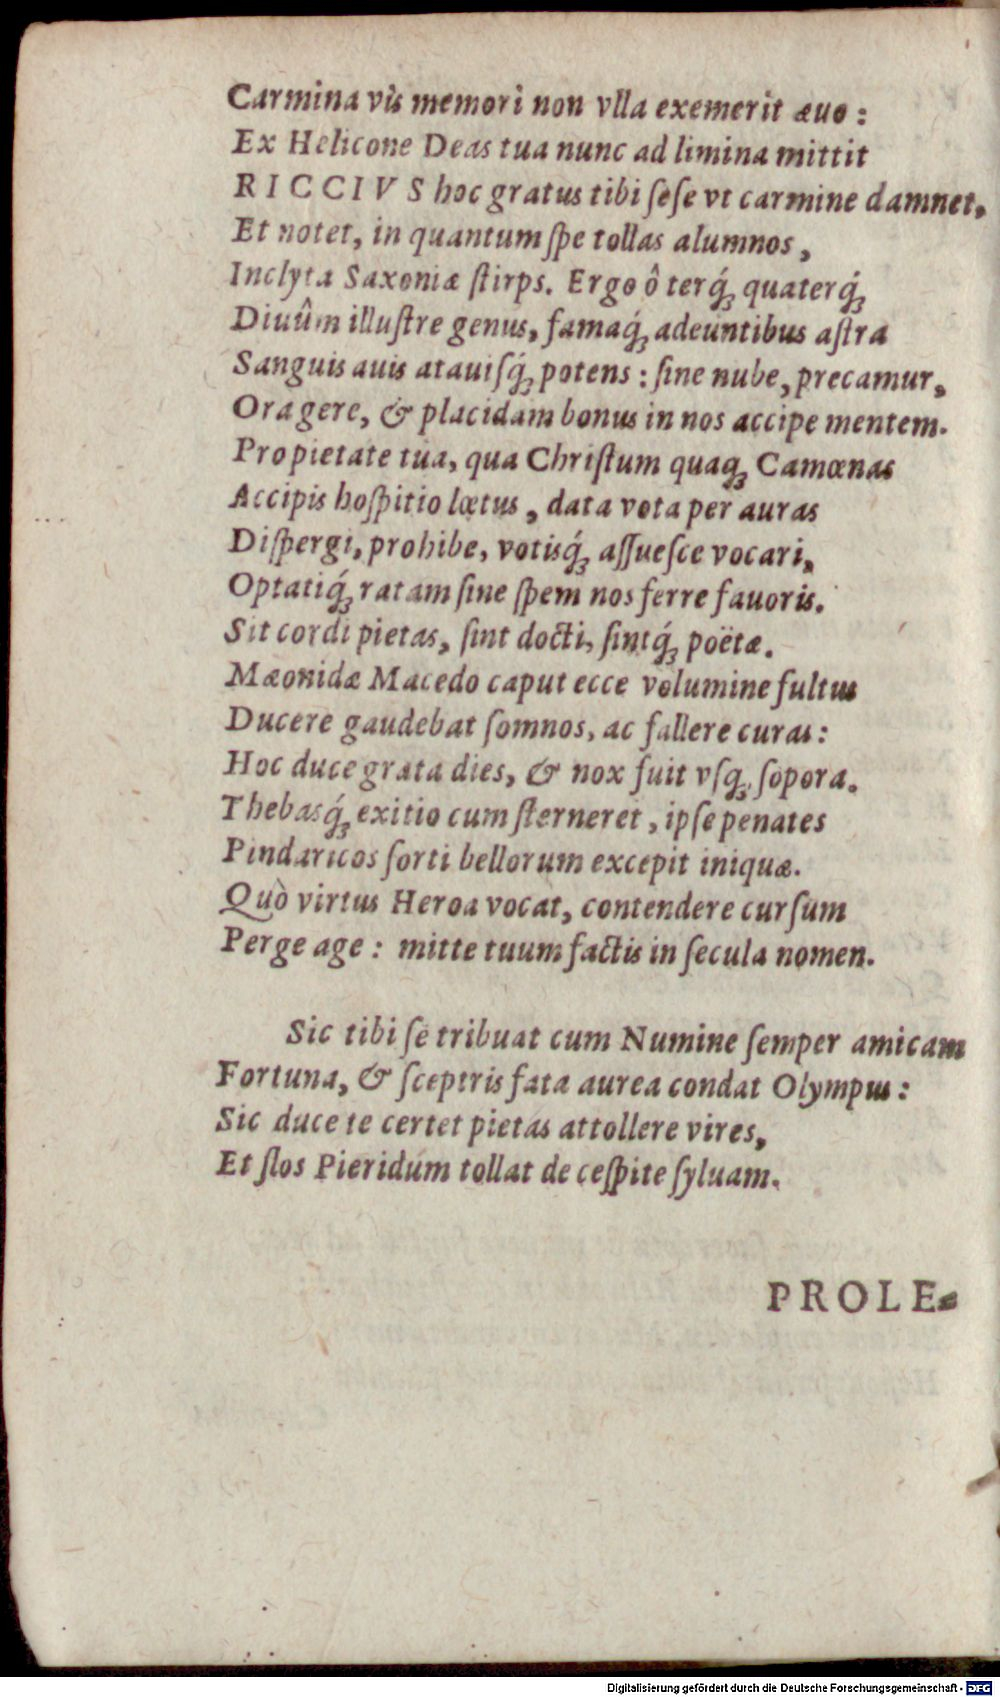 Carmina vìs memori non vlla exemerit æuo :
Ex Helicone Deas tua nunc ad limina mittit
RICCIVS hoc gratus tibi ſeſe vt carmine damnet,
Et notet, in quantum ſpe tollas alumnos,
Inclyta Saxoniæ ſtirps. Ergo ô terq́ꝫ quaterq́ꝫ
Diuûm illuſtre genus, famaq́ꝫ adeuntibus aſtra
Sanguis auis atauiſq́ꝫ potens : ſine nube, precamur,
Ora gere, & placidam bonus in nos accipe mentem.
Pro pietate tua, qua Chriſtum quaqꝫ Camœnas
Accipis hoſpitio lœtus, data vota per auras
Diſpergi, prohibe, votisq́ꝫ aſſueſce vocari,
Optatiq́ꝫ ratam ſine ſpem nos ferre fauoris.
Sit cordi pietas, ſint docti, ſintq́ꝫ poëtæ.
Mæonidæ Macedo caput ecce volumine fultus
Ducere gaudebat ſomnos, ac fallere curas :
Hoc duce grata dies, & nox fuit vſqꝫ ſopora.
Thebasq́ꝫ exitio cum ſterneret, ipſe penates
Pindaricos ſorti bellorum excepit iniquæ.
Quò virtus Heroa vocat, contendere curſum
Perge age : mitte tuum factis in ſecula nomen.
Sic tibi ſe tribuat cum Numine ſemper amicam
Fortuna, & ſceptris fata aurea condat Olympus :
Sic duce te certet pietas attollere vires,
Et flos Pieridum tollat de ceſpite ſyluam.
PROLE-
Digitalisierung gefördert durch die Deutsche Forschungsgemeinschaft - DFG